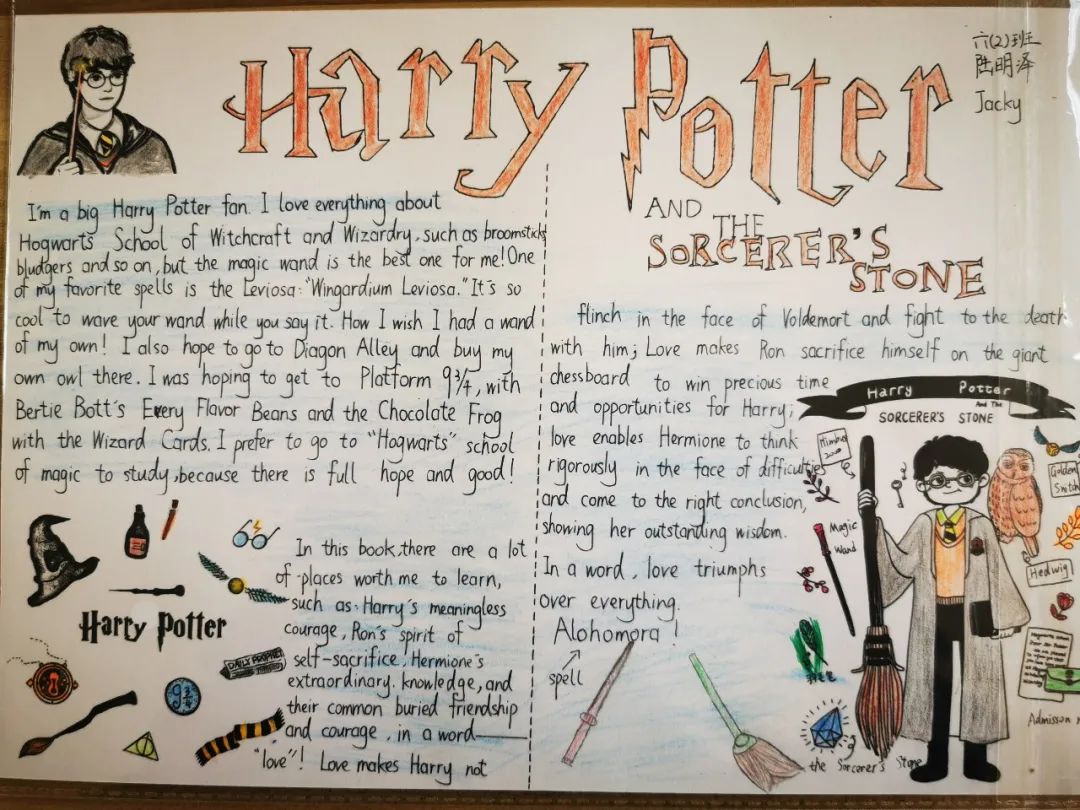 Harry Potter
AND THE
SORCERER'S
STONE
六(2)班
陆明泽
Jacky
I'm a big Harry Potter fan. I love everything about
Hogwarts School of Witchcraft and Wizardry, such as broomsticks
bludgers and so on, but the magic wand is the best one for me! One
of my favorite spells is the Leviosa: "Wingardium Leviosa." It's so
cool to wave your wand while you say it. How I wish I had a wand
of my own! I also hope to go to Diagon Alley and buy my
own owl there. I was hoping to get to Platform 9¾, with
Bertie Bott's Every Flavor Beans and the Chocolate Frog
with the Wizard Cards. I prefer to go to "Hogwarts" school
of magic to study, because there is full hope and good!
In this book, there are a lot
of places worth me to learn,
such as: Harry's meaningless
courage, Ron's spirit of
self-sacrifice, Hermione's
extraordinary knowledge, and
their common buried friendship
and courage, in a word——
"love"! Love makes Harry not
flinch in the face of Voldemort and fight to the death
with him; Love makes Ron sacrifice himself on the giant
chessboard to win precious time
and opportunities for Harry;
love enables Hermione to think
rigorously in the face of difficulties
and come to the right conclusion,
showing her outstanding wisdom.
In a word, love triumphs
over everything.
Alohomora!
spell
Harry Potter
DAILY PROPHET
9¾
Harry Potter
And The
SORCERER'S STONE
Golden
Snitch
Magic
Wand
Hedwig
Admisson
the Sorcerer's Stone